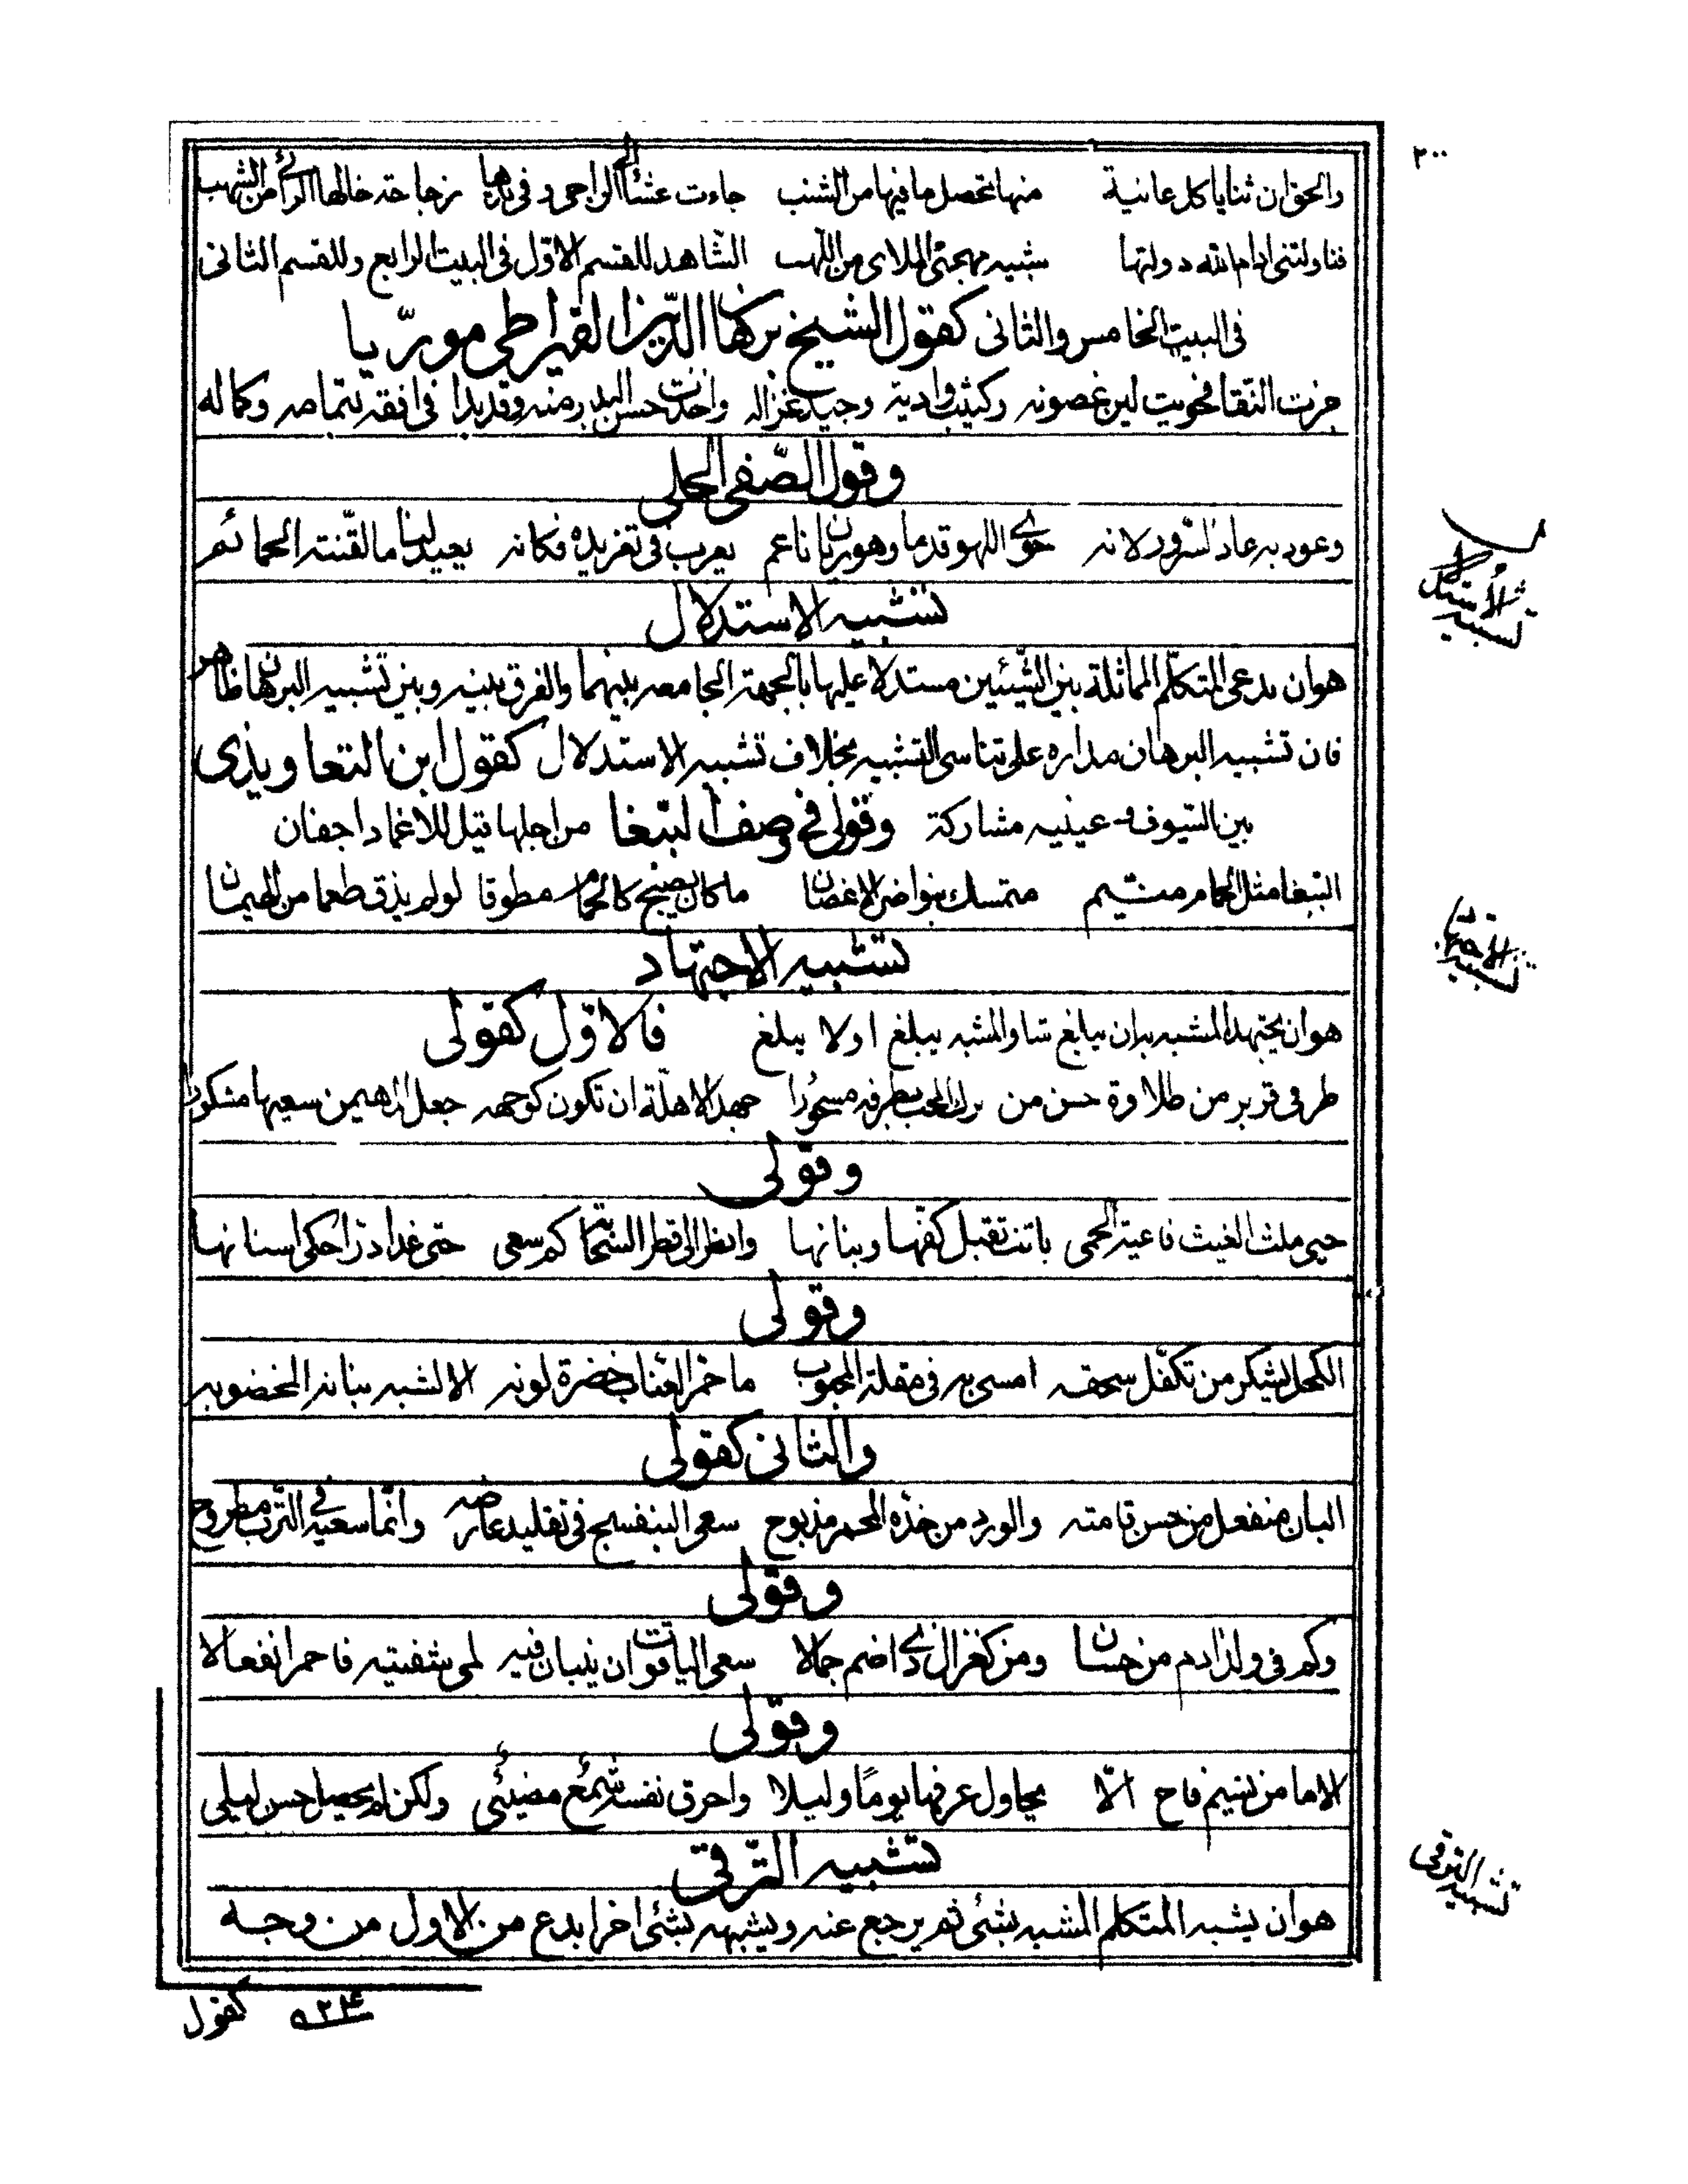 ٢٠٠
والحق ان ثنايا كل غانية منها تحصل ما فيها من الشنب جاءت عشاء الى الراجي وفي يدها زجاجة خالها الرائي من الشهب
فناولتني ادام الله دولتها شبيه مهجتي الملاى من اللهب الشاهد للقسم الاوّل في البيت الرابع وللقسم الثانى
فى البيت الخامس والثانى كقول الشيخ برهان الدّين القيراطى مورّيا
جزت النقا فحويت لين غصونه وكثيب واديه وجيد غزاله واخذت حسن البدر منه وقد بدا فى افقه بتمامه وكماله
وقول الصّفى الحلى
وعود به عاد السّرور لانه حوى اللهو قدما وهو ريان ناعم يعرب فى تغريده فكانه يعيد لنا ما لقّنته الحمائم
تشبيه الاستدلال
هو ان يدعى المتكلّم المماثلة بين الشّيئين مستدلا عليها بالجهة الجامعه بينهما والفرق بينه وبين تشبيه البرهان ظاهر
فان تشبيه البرهان مداره على تناسى التشبيه بخلاف تشبيه الاستدلال كقول ابن التعاويذى
بين السّيوف وعينيه مشاركة من اجلها قيل للاغماد اجفان وقولى فى وصف الببّغا
الببّغا مثل الحمام متيم متمسك بنواضر الاغصان ما كان يصبح كالحمام مطوقا لو لم يذق طعما من الهيمان
تشبيه الاجتهاد
هو ان يجتهد المشبه بان يبلغ شاو المشبه يبلغ او لا يبلغ فالاوّل كقولى
طرفى قرير من طلاوة حسن من ترك المحب بطرفه مسحورا جهد الاهلّة ان تكون كوجهه جعل الرهيمن سعيها مشكورا
وقولى
حيى ملث الغيث فاعية الحمى باتت تقبل كفّها وبنانها وانظر الى قطر السّحاب كم سعى حتى غدا درّا حكى اسنانها
وقولى
الكحل ليشكر من تكفّل سحقه امسى به فى مقلة المحبوب ما خمر العنّاب خضرة لونه الا لشبه بنانه المخضوب
والثانى كقولى
البان منفعل من حسن قامته والورد من خدّه المحمر مذبوح سعى البنفسج فى تقليد عارضه وانّما سعيه فى التّرب مطروح
وقولى
وكم فى ولد ادم من حسان ومن كغزال ذى اضم جمالا سعى الياقوت ان ينبان فيه لمى شفتيه فاحمر انفعالا
وقولى
الا ما من نسيم فاح الّا يحاول عرفها يومًا وليلا واحرق نفسه شمع مضيئى ولكن لم يحصل حسن ليلى
تشبيه التّرقى
هو ان يشبه المتكلم المشبه بشئى ثم يرجع عنه ويشبهه بشئى اخر ابدع من الاول من وجه
كقول
تشبيه الاستدلال
تشبيه الاجتهاد
تشبيه الترقى